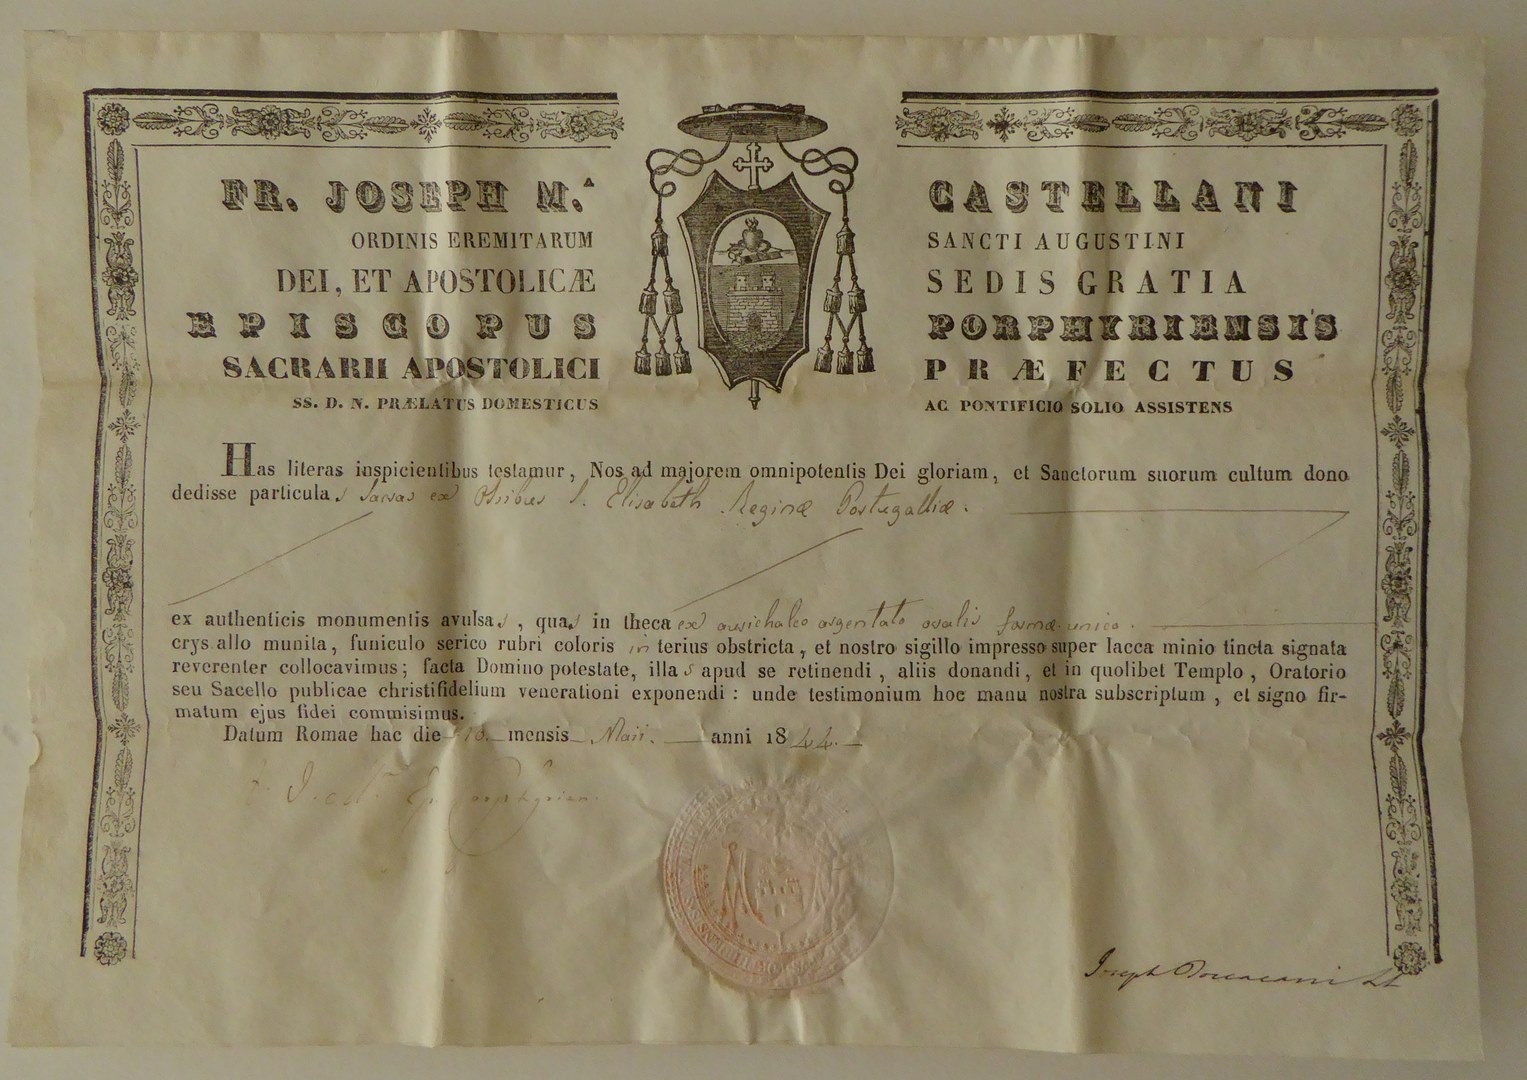 FR. JOSEPH M.ᴬ CASTELLANI
ORDINIS EREMITARUM SANCTI AUGUSTINI
DEI, ET APOSTOLICÆ SEDIS GRATIA
EPISCOPUS PORPHYRIENSIS
SACRARII APOSTOLICI PRÆFECTUS
SS. D. N. PRÆLATUS DOMESTICUS AC PONTIFICIO SOLIO ASSISTENS
Has literas inspicientibus testamur, Nos ad majorem omnipotentis Dei gloriam, et Sanctorum suorum cultum dono
dedisse particulas sacras ex Ossibus S. Elisabeth Reginæ Portugalliæ.
ex authenticis monumentis avulsas, quas in theca ex aurichalco argentato ovalis formæ unico.
crys allo munita, funiculo serico rubri coloris in terius obstricta, et nostro sigillo impresso super lacca minio tincta signata
reverenter collocavimus; facta Domino potestate, illas apud se retinendi, aliis donandi, et in quolibet Templo, Oratorio
seu Sacello publicae christifidelium venerationi exponendi: unde testimonium hoc manu nostra subscriptum, et signo fir-
matum ejus fidei commisimus.
Datum Romae hac die mensis Maii. anni 1844.
Joseph